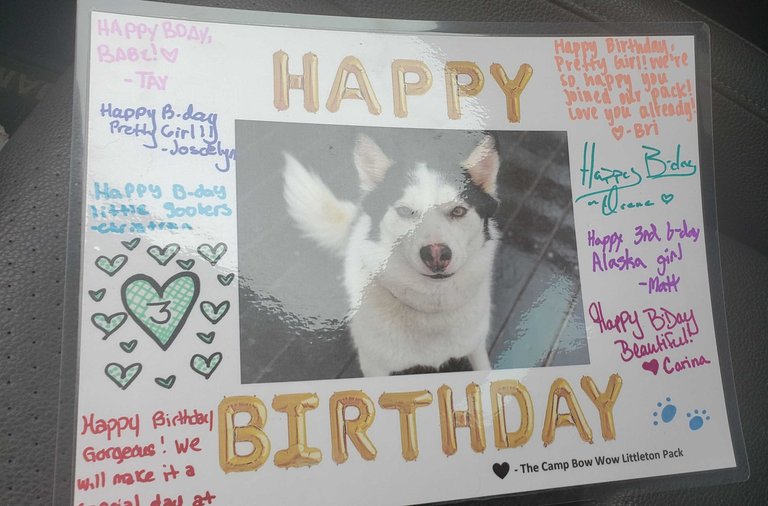 HAPPY BDAY,
BABE! ♡
-TAY
Happy B-day
Pretty Girl!!
-Joscelyn
Happy B-day
little goobers
-Christian
3
Happy Birthday
Gorgeous! We
will make it a
special day at
HAPPY
BIRTHDAY
Happy Birthday,
Pretty Girl! We're
so happy you
joined our pack!
Love you already!
♡-Bri
Happy B-day
♡
Happy 3rd b-day
Alaska girl
-Matt
Happy BiDay
Beautiful!
♥ Carina
🖤 - The Camp Bow Wow Littleton Pack